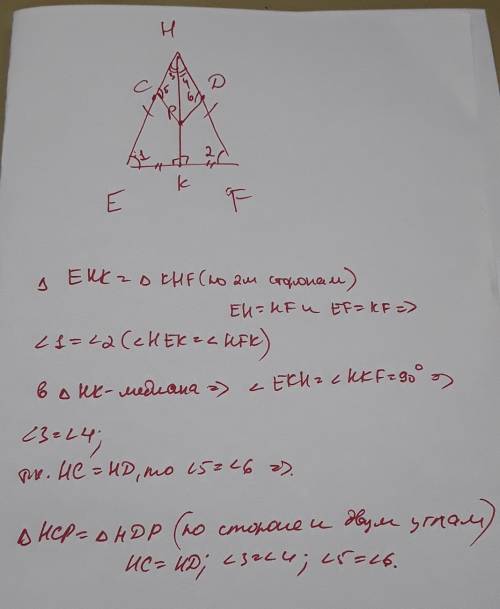 H
C 5 3 4 6 D
P
1 2
E K F
Δ EHK = Δ KHF (по 2м сторонам)
EH = HF и EF = KF =>
∠1 = ∠2 (∠HEK = ∠HFK)
в Δ HK - медиана => ∠ EKH = ∠HKF = 90° =>
∠3 = ∠4;
т.к. HC = HD, то ∠5 = ∠6 =>.
Δ HCP = Δ HDP (по стороне и двум углам)
HC = HD; ∠3 = ∠4; ∠5 = ∠6.